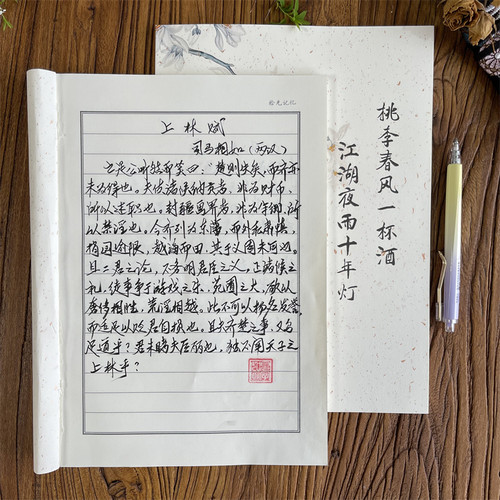 上林赋
司马相如(两汉)
亡是公听然而笑曰:“楚则失矣,而齐亦
未为得也。夫使诸侯纳贡者,非为财币,
所以述职也。封疆画界者,非为守御,所
以禁淫也。今齐列为东藩,而外私肃慎,
捐国逾限,越海而田,其于义固未可也。
且二君之论,不务明君臣之义,正诸侯之
礼,徒事争于游戏之乐,苑囿之大,欲以
奢侈相胜,荒淫相越。此不可以扬名发誉,
而适足以贬君自损也。且夫齐楚之事,又乌
足道乎?君未睹夫巨丽也,独不闻天子之
上林乎?
桃李春风一杯酒
江湖夜雨十年灯